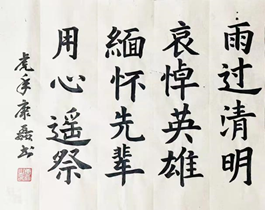 雨过清明
哀悼英雄
緬怀先辈
用心遥祭
虎年康磊书